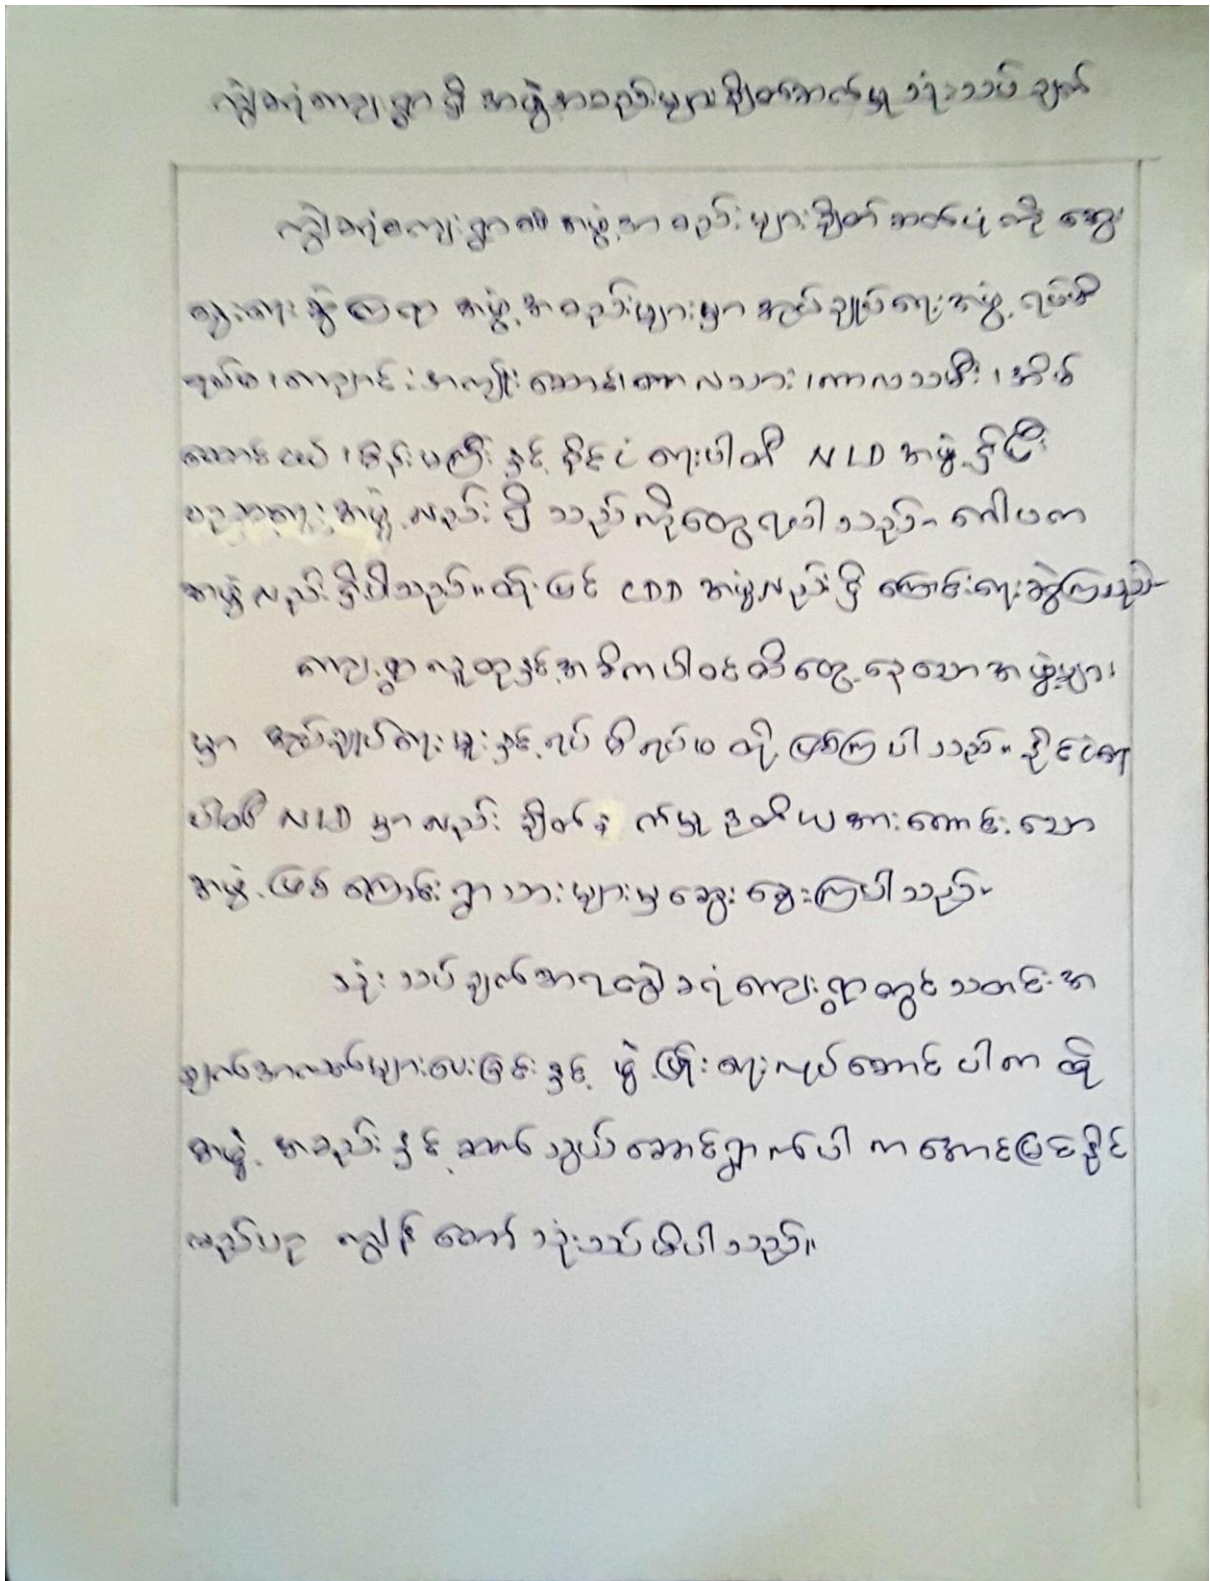 ကျွဲခရုံကျေးရွာ ရှိ အဖွဲ့အစည်းများချိတ်ဆက်မှု သုံးသပ် ချက်
ကျွဲခရုံကျေးရွာ၏ အဖွဲ့အစည်းများချိတ်ဆက်ပုံ ကို ဆွေး
နွေးရေးဆွဲကြရာ အဖွဲ့အစည်းများမှာ အုပ်ချုပ်ရေးအဖွဲ့ ရပ်မိ
ရပ်ဖ၊ ကျောင်းအကျိုးဆောင်၊ ကာလသား၊ ကာလသမီး၊ အိမ်
ထောင်ငယ်၊ နှင့် နိုင်ငံရေးပါတီ NLD အဖွဲ့ရှိပြီး
ပညာရေးအဖွဲ့လည်းရှိသည်ကိုတွေ့ရပါသည်။ ဂေါပက
အဖွဲ့လည်းရှိပါသည်။ ထို့ပြင် CDD အဖွဲ့လည်းရှိကြောင်းရေးဆွဲကြသည်။
ကျေးရွာလူထုနှင့်အဓိကပါဝင်ထိတွေ့နေသောအဖွဲ့များ
မှာ အုပ်ချုပ်ရေးမှူးနှင့်ရပ်မိရပ်ဖတို့ဖြစ်ကြပါသည်။ နိုင်ငံရေး
ပါတီ NLD မှာလည်း ချိတ်ဆက်မှု ဒုတိယအားကောင်းသော
အဖွဲ့ဖြစ်ကြောင်းရွာသားများမှဆွေးနွေးကြပါသည်။
သုံးသပ်ချက်အရကျွဲခရုံကျေးရွာတွင်သတင်းအ
ချက်အလက်များပေးခြင်းနှင့် ဖွံ့ဖြိုးရေးလုပ်ဆောင်ပါက ထို
အဖွဲ့အစည်းနှင့်ဆက်သွယ်ဆောင်ရွက်ပါကအောင်မြင်နိုင်
မည်ဟု ကျွန်တော်သုံးသပ်မိပါသည်။